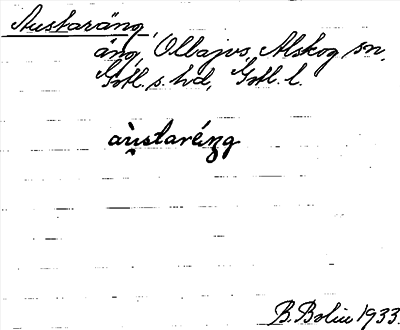 Austaräng
äng, Ollajvs, Alskog sn,
Gotl. s. hd, Gotl. l.
àustaréng
B. Bolin 1933.